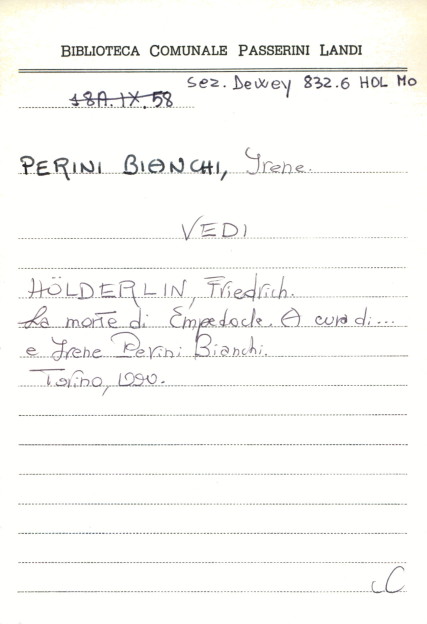 BIBLIOTECA COMUNALE PASSERINI LANDI
sez. Dewey 832.6 HOL Mo
18A.IX.58
PERINI BIANCHI, Irene.
VEDI
HÖLDERLIN, Friedrich.
La morte di Empedocle. A cura di...
e Irene Perini Bianchi.
Torino, 1990.
C